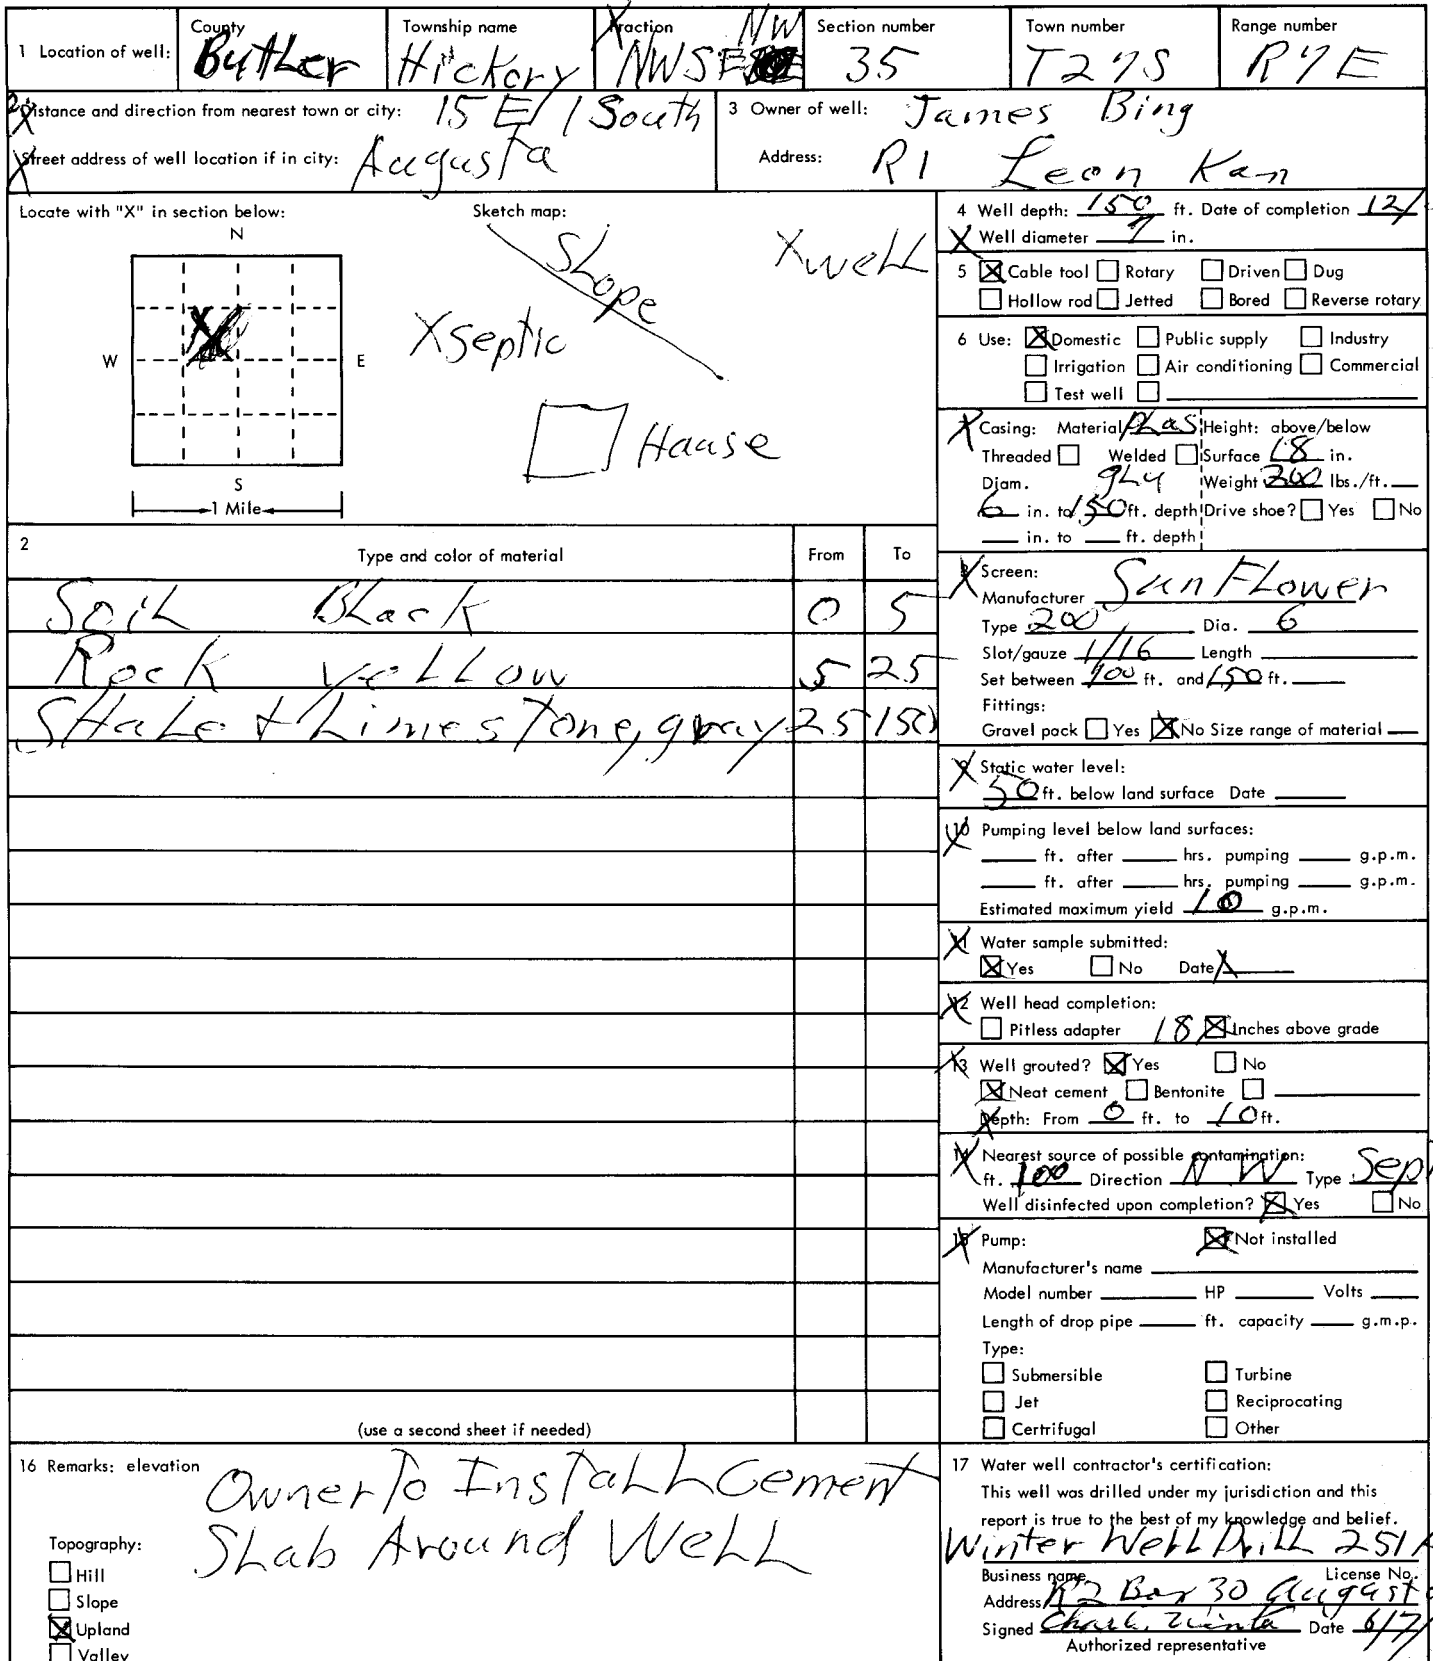 1 Location of well: County Butler Township name Hickory Fraction NW NWSE Section number 35 Town number T27S Range number R7E
Distance and direction from nearest town or city: 15 E / 1 South
Street address of well location if in city: Augusta
3 Owner of well: James Bing
Address: R1 Leon Kan
Locate with "X" in section below:
N
W E
S
1 Mile
Sketch map:
Slope
X Well
X Septic
Hause
4 Well depth: 150 ft. Date of completion 12/
Well diameter 7 in.
5 ☒ Cable tool ☐ Rotary ☐ Driven ☐ Dug
☐ Hollow rod ☐ Jetted ☐ Bored ☐ Reverse rotary
6 Use: ☒ Domestic ☐ Public supply ☐ Industry
☐ Irrigation ☐ Air conditioning ☐ Commercial
☐ Test well ☐
7 Casing: Material Plas Height: above/below
Threaded ☐ Welded ☐ Surface 18 in.
Diam. gLu Weight 200 lbs./ft.
6 in. to 150 ft. depth Drive shoe? ☐ Yes ☐ No
in. to ft. depth
2 Type and color of material From To
Soil Black 0 5
Rock yellow 5 25
SHale + Limestone, gray 25 150
(use a second sheet if needed)
8 Screen:
Manufacturer SunFlower
Type 200 Dia. 6
Slot/gauze 1/16 Length
Set between 100 ft. and 150 ft.
Fittings:
Gravel pack ☐ Yes ☒ No Size range of material
9 Static water level:
50 ft. below land surface Date
10 Pumping level below land surfaces:
ft. after hrs. pumping g.p.m.
ft. after hrs. pumping g.p.m.
Estimated maximum yield 10 g.p.m.
11 Water sample submitted:
☒ Yes ☐ No Date X
12 Well head completion:
☐ Pitless adapter 18 ☒ Inches above grade
13 Well grouted? ☒ Yes ☐ No
☒ Neat cement ☐ Bentonite ☐
Depth: From 0 ft. to 10 ft.
14 Nearest source of possible contamination:
ft. 100 Direction N W Type Sept
Well disinfected upon completion? ☒ Yes ☐ No
15 Pump: ☒ Not installed
Manufacturer's name
Model number HP Volts
Length of drop pipe ft. capacity g.m.p.
Type:
☐ Submersible ☐ Turbine
☐ Jet ☐ Reciprocating
☐ Certrifugal ☐ Other
16 Remarks: elevation
Owner To Install Cement
Slab Around Well
Topography:
☐ Hill
☐ Slope
☒ Upland
☐ Valley
17 Water well contractor's certification:
This well was drilled under my jurisdiction and this
report is true to the best of my knowledge and belief.
Winter Well Drill 251A
Business name License No.
Address R2 Box 30 Augusta
Signed Date 6/7/
Authorized representative